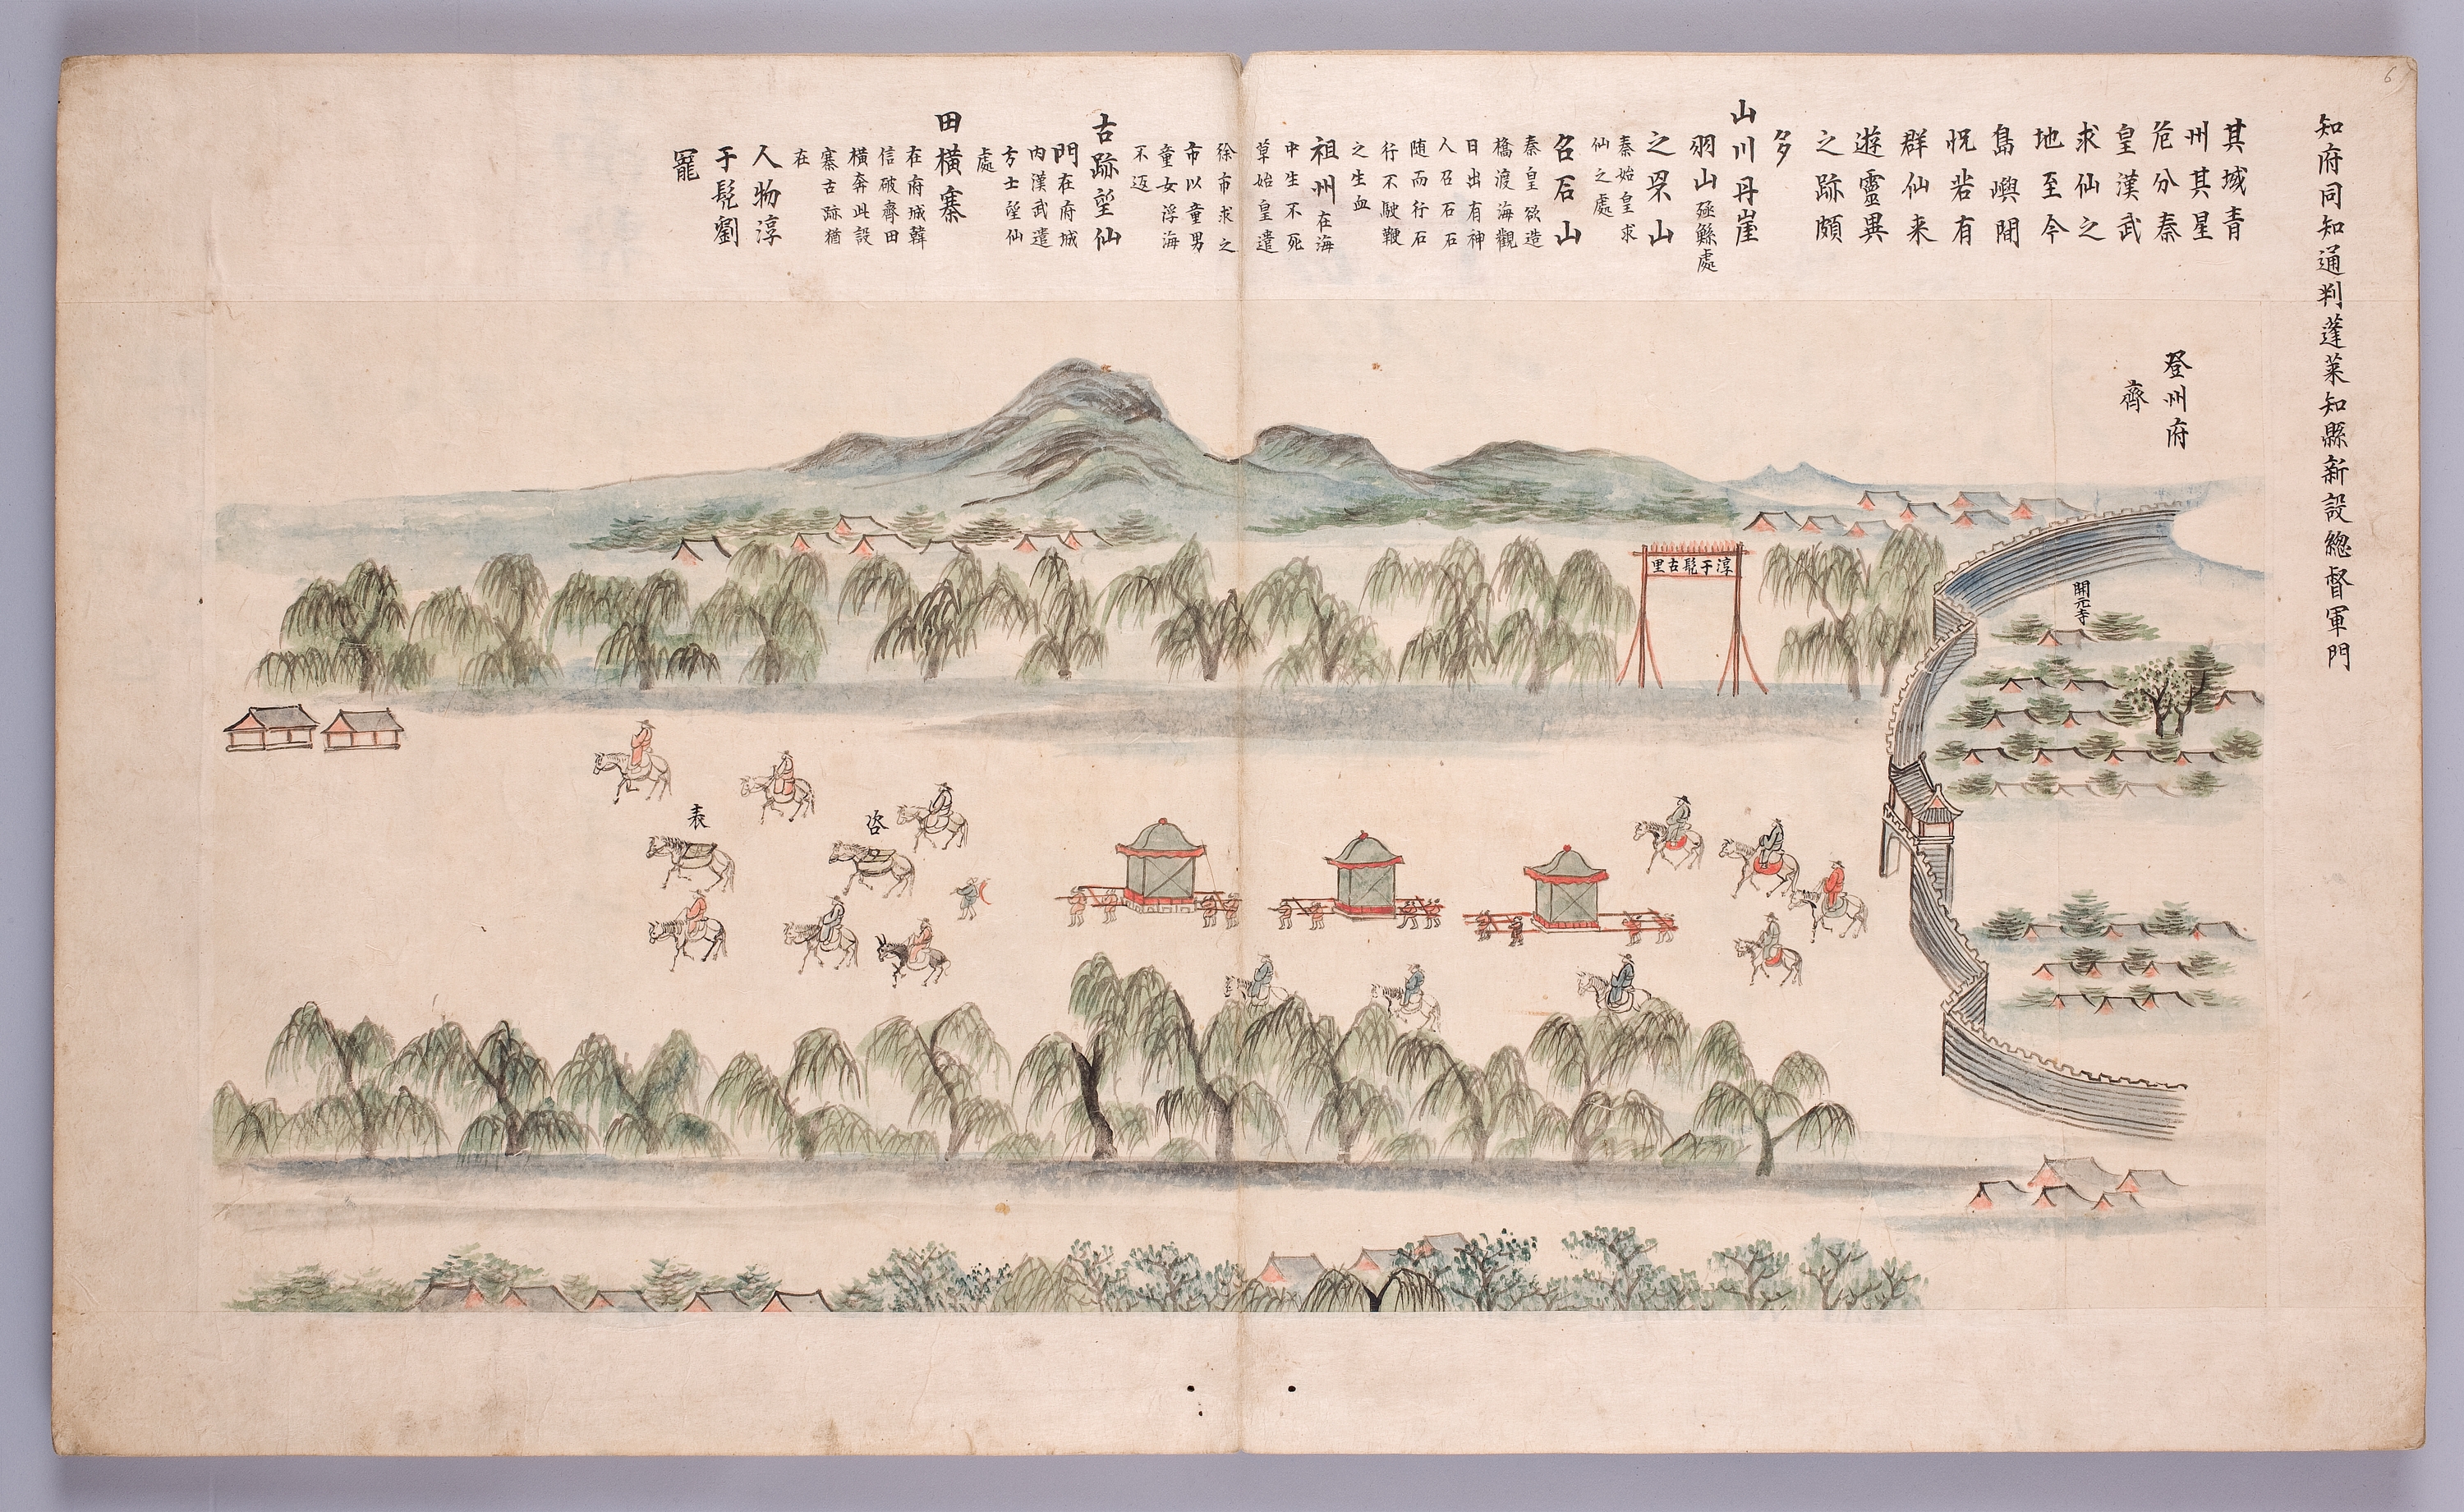 知府同知通判蓬萊知縣新設總督軍門
其域青
州其星
危分秦
皇漢武
求仙之
地至今
島嶼間
怳若有
群仙来
遊靈異
之跡頗
多
山川丹崖
羽山殛鯀處
之罘山
秦始皇求
仙之處
召石山
秦皇欲造
橋渡海觀
日出有神
人召石石
随而行石
行不駛鞭
之生血
祖州在海
中生不死
草始皇遣
徐市求之
市以童男
童女浮海
不返
古跡望仙
門在府城
内漢武遣
方士望仙
處
田橫寨
在府城韓
信破齊田
橫奔此設
寨古跡猶
在
人物淳
于髡劉
寵
登州府
齊
淳于髡古里
開元寺
表
咨
6